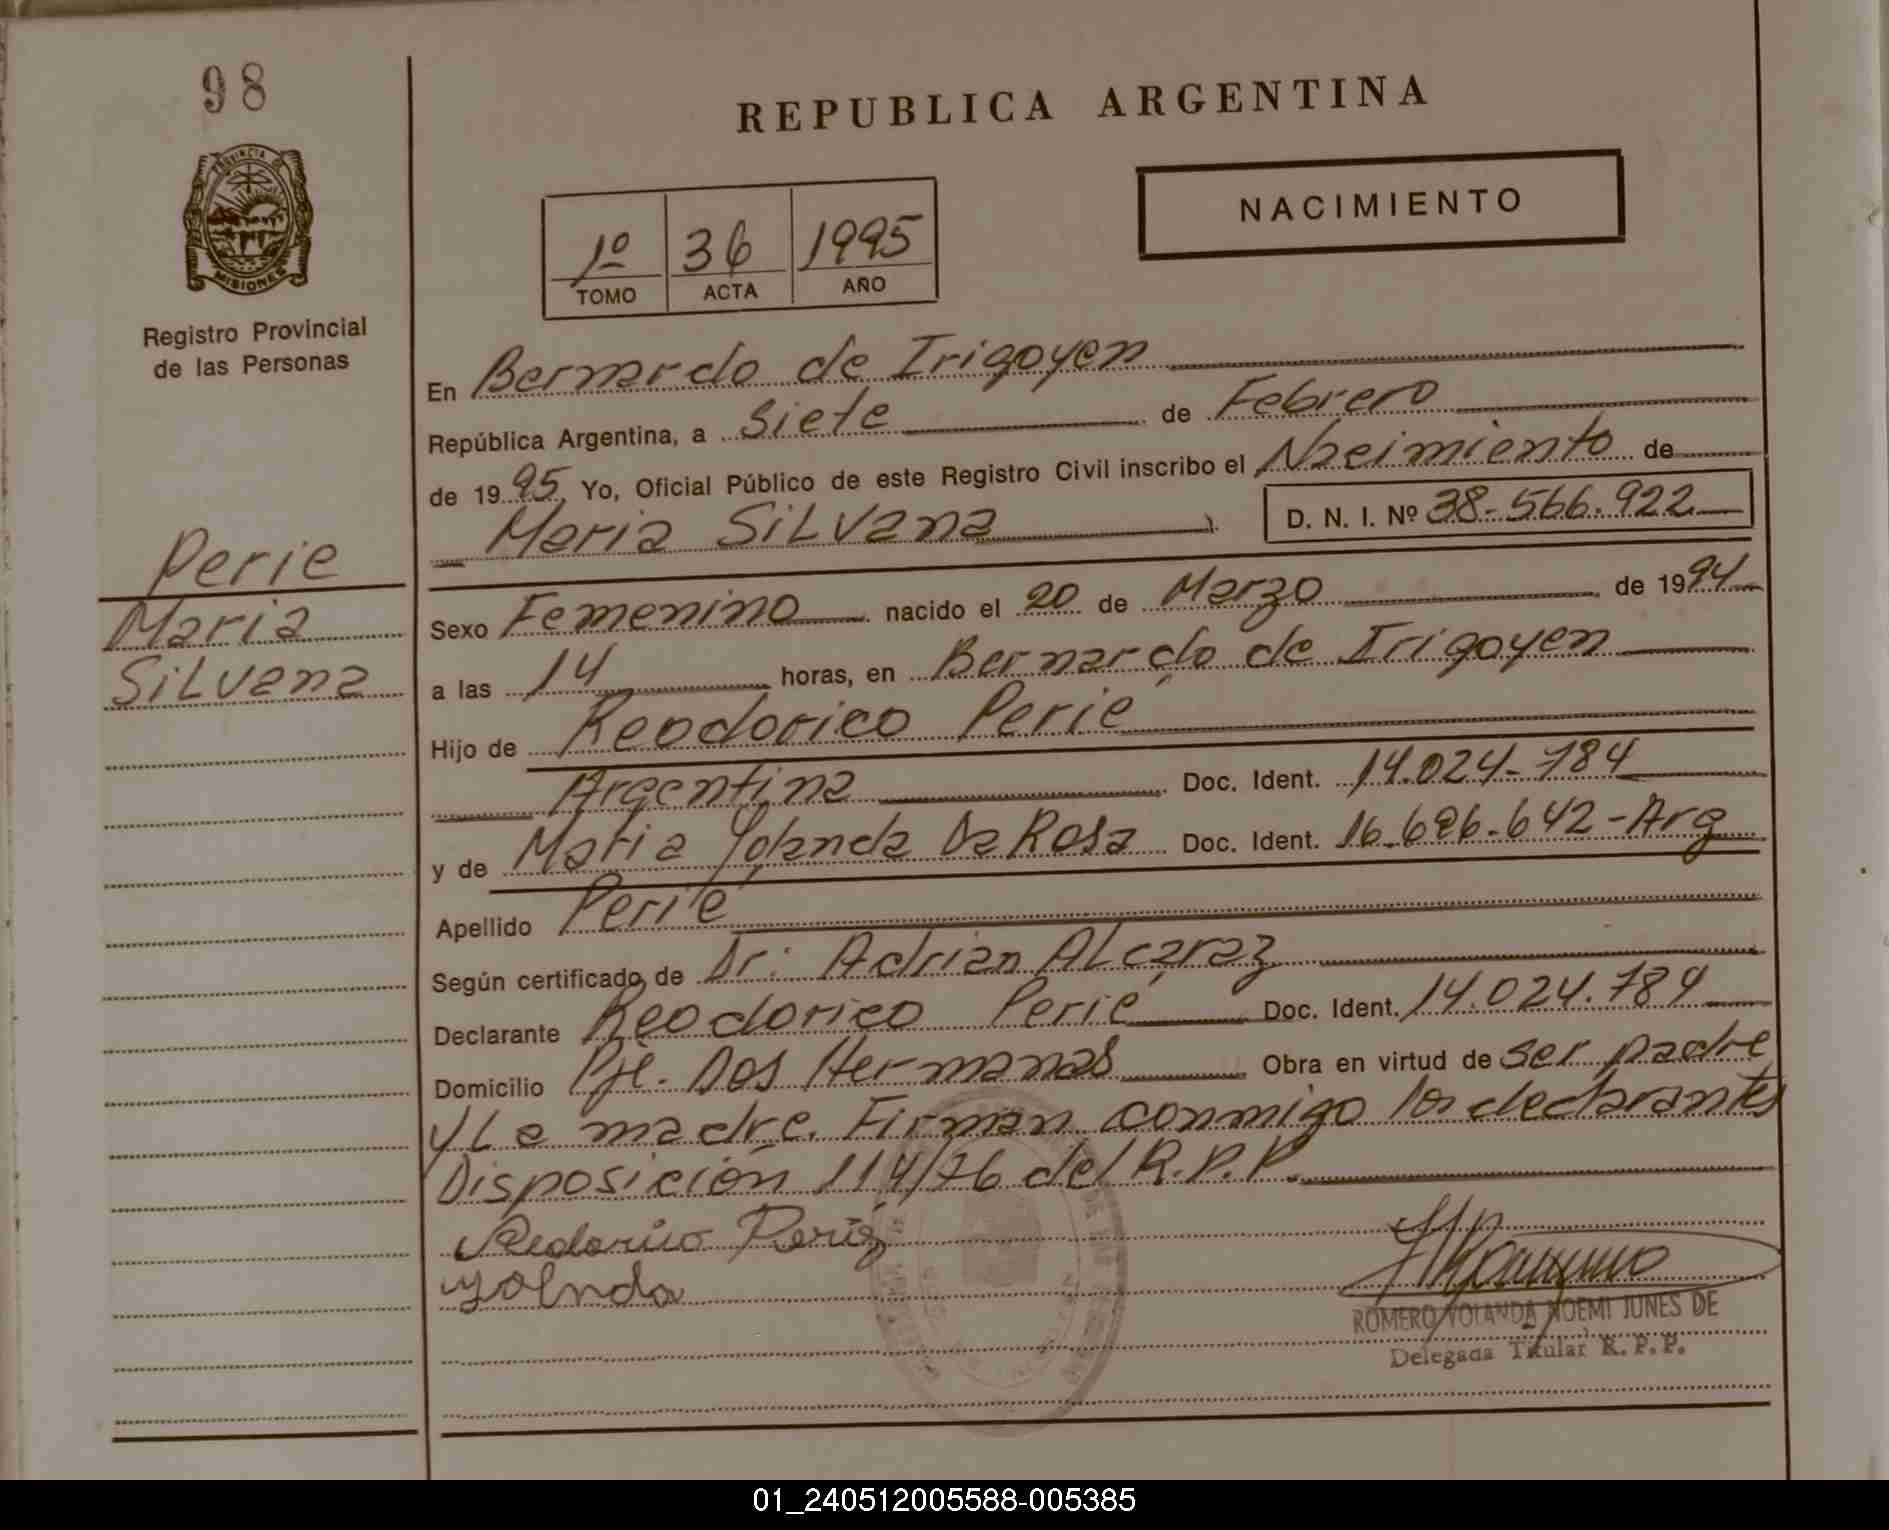 98
PROVINCIA DE
MISIONES
Registro Provincial
de las Personas
Perie
Maria
Silvana
REPUBLICA ARGENTINA
NACIMIENTO
1º 36 1995
TOMO ACTA AÑO
En Bernardo de Irigoyen
República Argentina, a siete de Febrero
de 1995, Yo, Oficial Público de este Registro Civil inscribo el Nacimiento de
Maria Silvana D. N. I. Nº 38.566.922
Sexo Femenino nacido el 20 de Marzo de 1994
a las 14 horas, en Bernardo de Irigoyen
Hijo de Reodorico Perié
Argentina Doc. Ident. 14.024.784
y de Maria Yolanda Da Rosa Doc. Ident. 16.696.642-Arg
Apellido Perié
Según certificado de Dr: Adrian Alcaraz
Declarante Reodorico Perié Doc. Ident. 14.024.784
Domicilio Pje. Dos Hermanas Obra en virtud de ser padre
y La madre. Firman conmigo los declarantes
Disposición 114/76 del R.P.P.
Perié
yolnda
ROMERO YOLANDA NOEMI JUNES DE
Delegada Titular R. P. P.
01_240512005588-005385